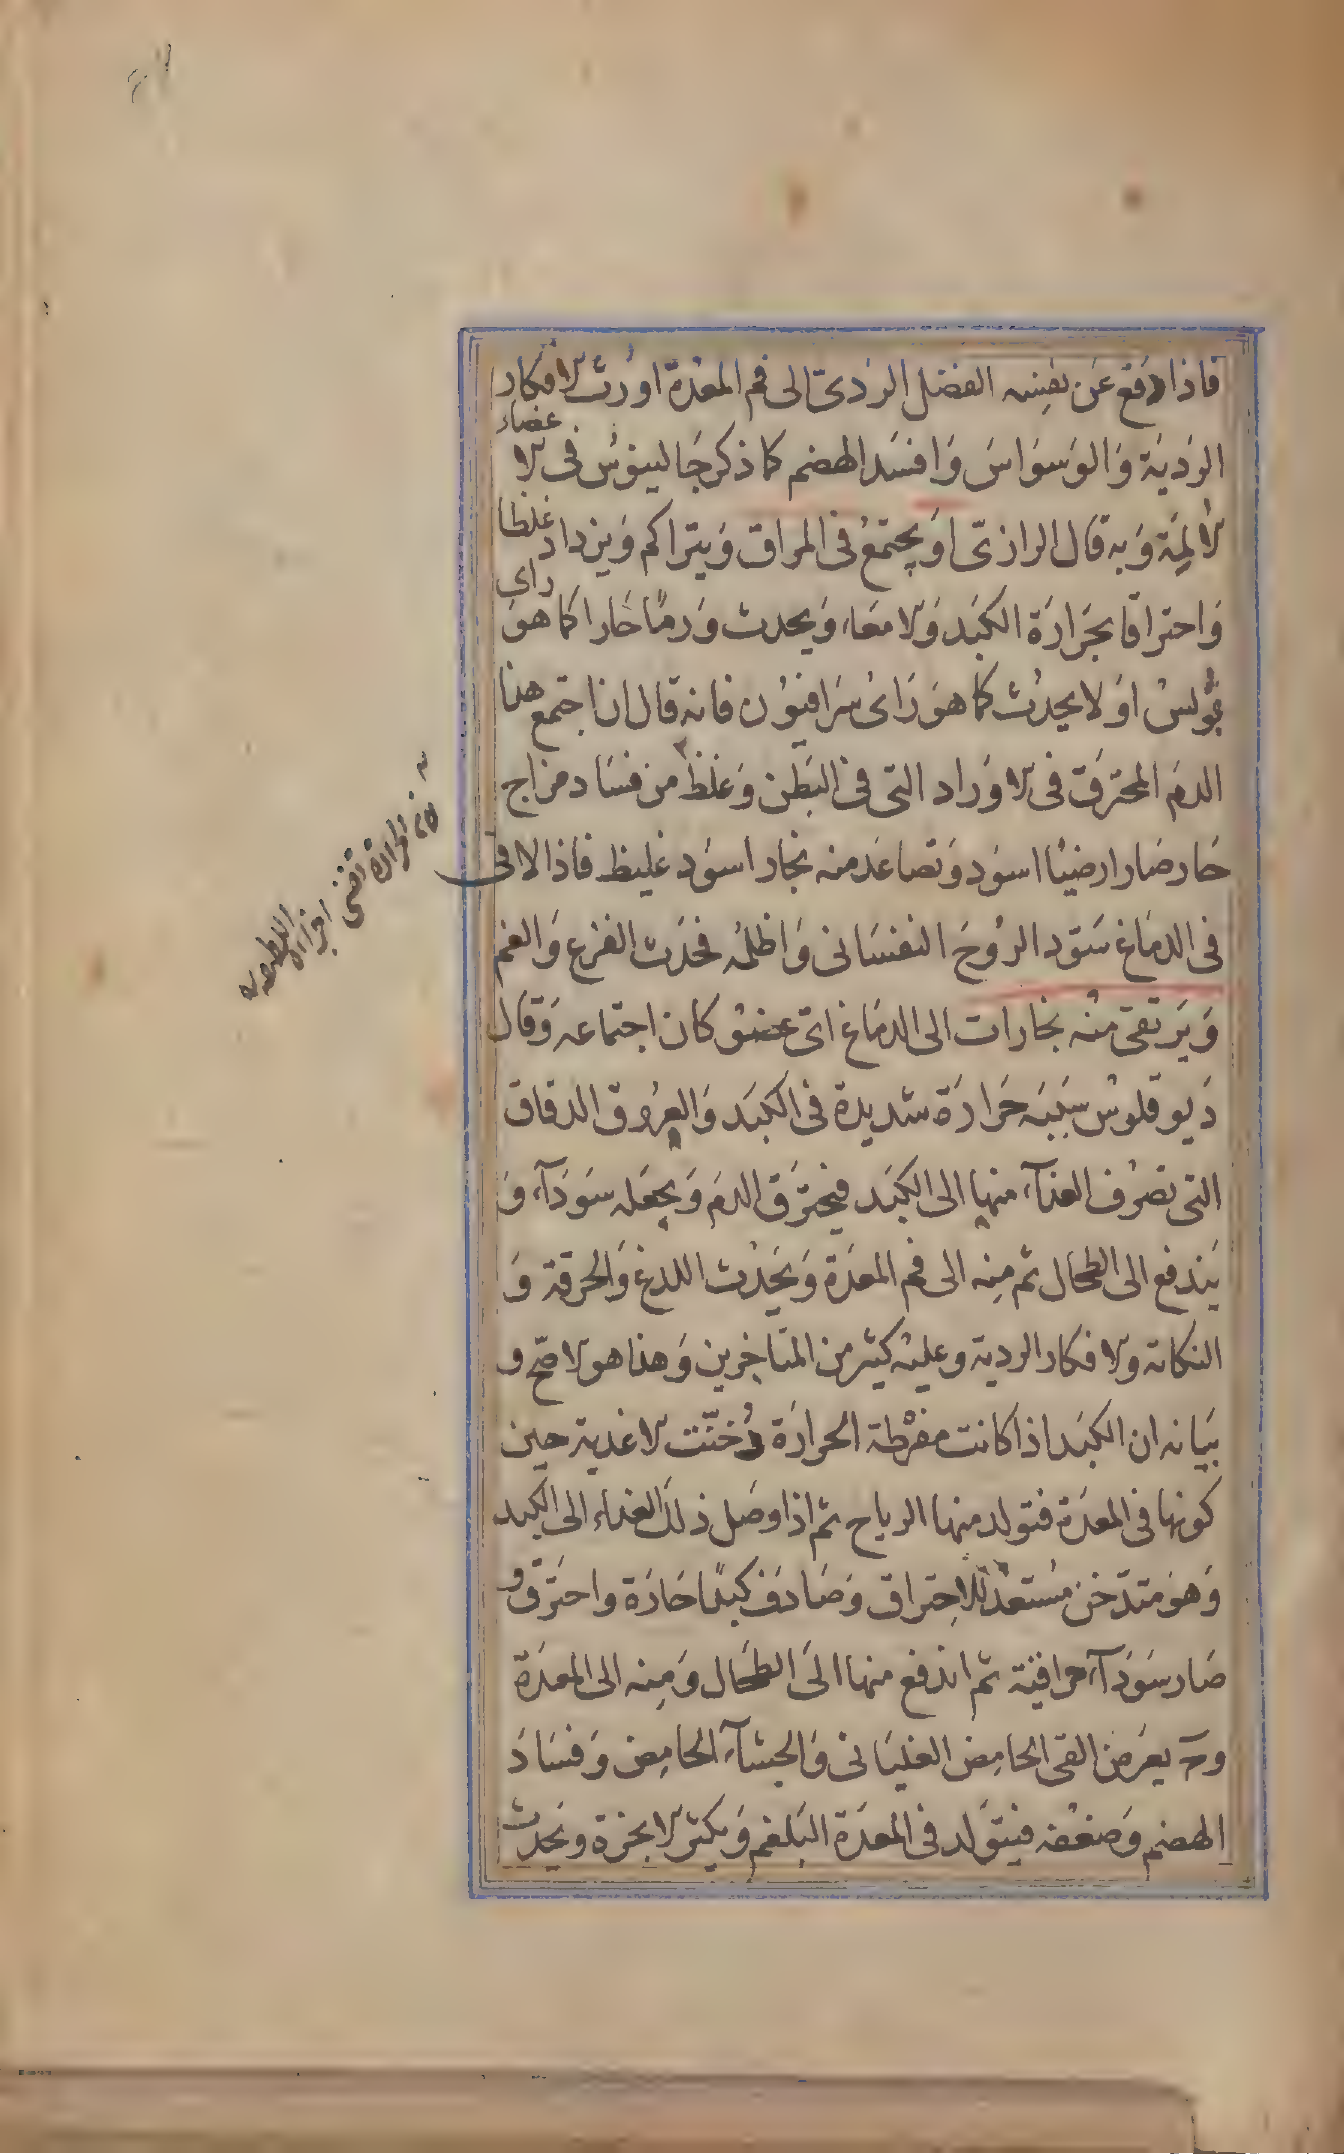 فاذا دفع عن نفسه الفضل الردى الى فم المعدة اورث الافكار
الردية والوسواس وافسد الهضم كما ذكر جالينوس فى الاعضاء
الالمة وبه قال الرازى او يجتمع فى المراق ويتراكم ويزداد غلظا
واحتراقا بحرارة الكبد والامعاء ويحدث ورما حارا كما هو راى
بولس او لا يحدث كما هو راى سرافيون فانه قال ان اجتمع هنا
الدم المحترق فى الاوراد التى فى البطن وغلظ من فساد مزاج
حار صار ارضيا اسود وتصاعد منه بخار اسود غليظ فاذا لاقى
فى الدماغ سود الروح النفسانى واظلمه فحدث الفزع والغم
ويرتقى منه بخارات الى الدماغ اى عضو كان اجتماعه وقال
ديوقلوس سببه حرارة شديدة فى الكبد والعروق الدقاق
التى تصرف الغذآء منها الى الكبد فيحترق الدم ويجعله سودآء و
يندفع الى الطحال ثم منه الى فم المعدة ويحدث اللدغ والحرقة و
النكاتة والافكار الردية وعليه كثير من المتاخرين وهذا هو الاصح و
بيانه ان الكبد اذا كانت مفرطة الحرارة دُخنّت الاغدية حين
كونها فى المعدة فتولد منها الرياح ثم اذا وصل ذلك الغذاء الى الكبد
وهو متدخن مستعد للاحتراق وصادف كبدا حارة واحترق و
صار سودآء حراقية ثم اندفع منها الى الطحال ومنه الى المعدة
وح يعرض القى الحامض الغليانى والجشآء الحامض وفساد
الهضم وضعفه فيتولد فى المعدة البلغم ويكثر الابخرة ويحدث